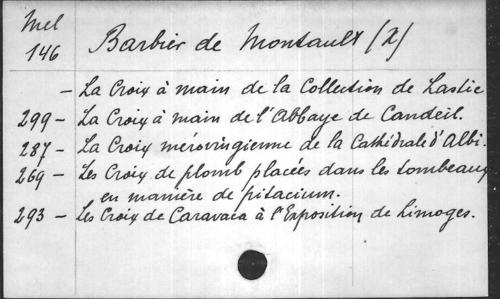 Mel
146
Barbier de Montault (X)
- La Croix à main de la Collection de Lastic
299 - La Croix à main de l'Abbaye de Candeil.
287 - La Croix mérovingienne de la Cathédrale d'Albi.
269 - Les Croix de plomb placées dans les tombeaux
en manière de pitacium.
293 - Les Croix de Caravaca à l'Exposition de Limoges.